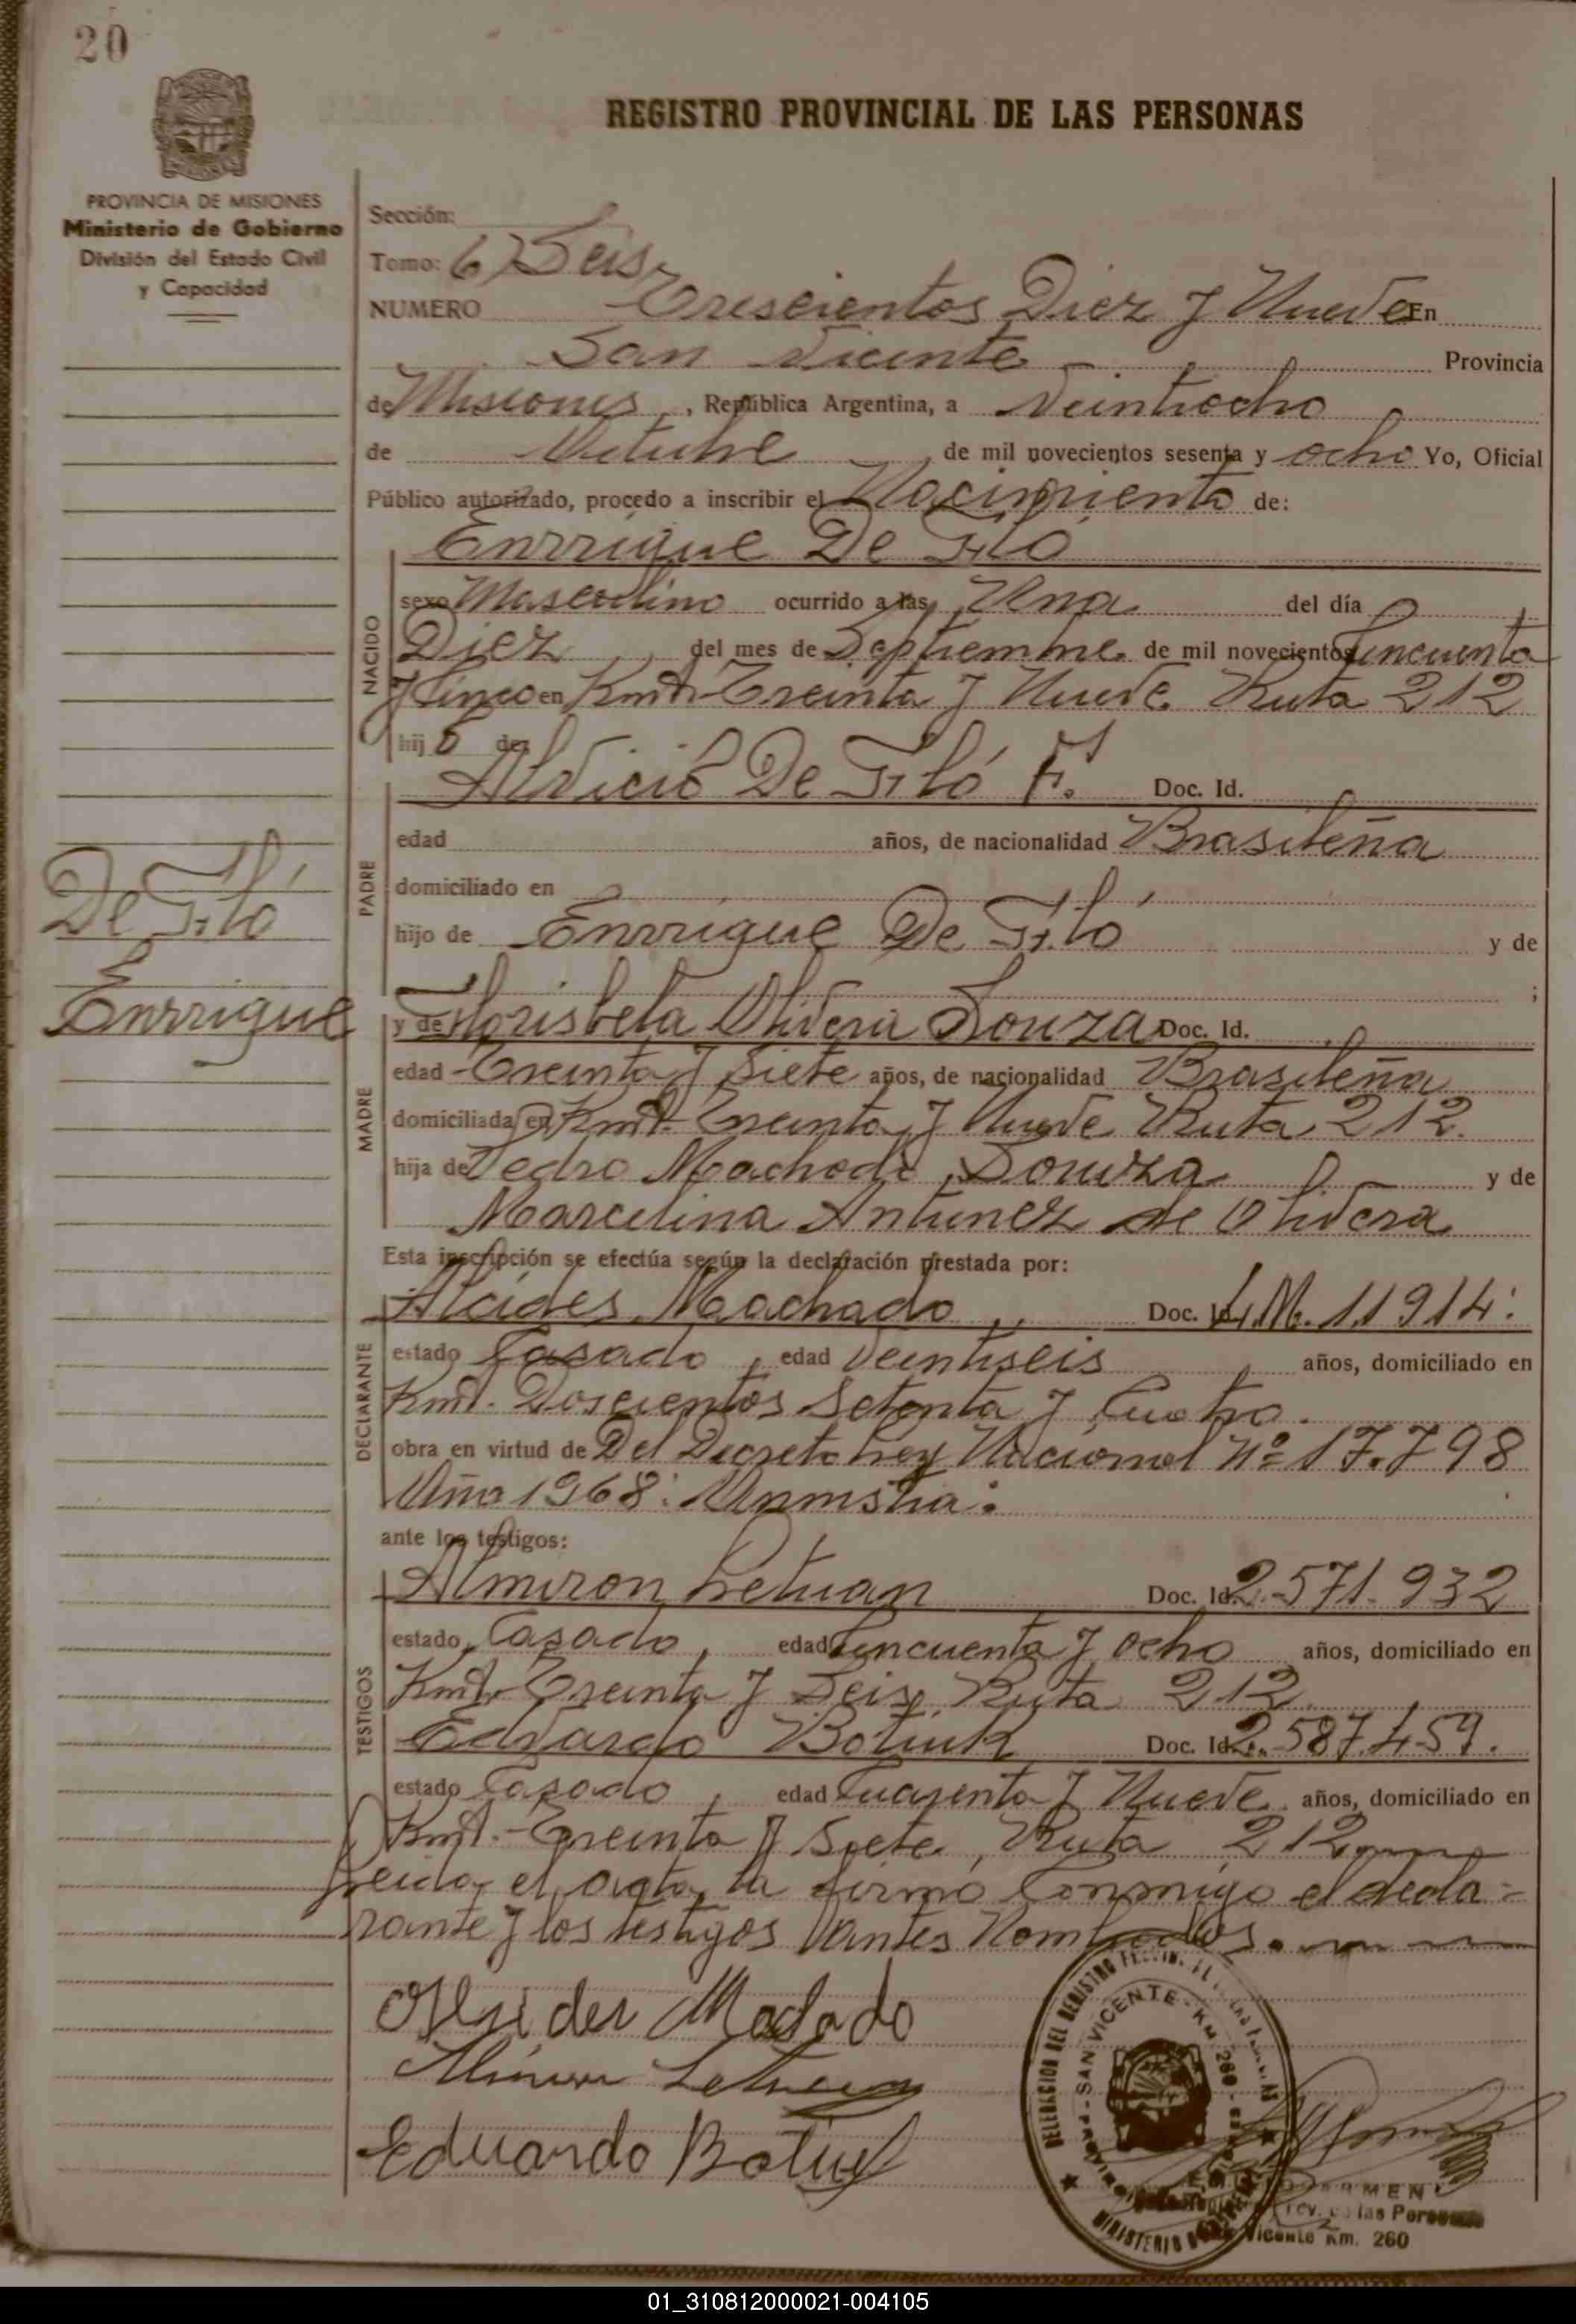 20
REGISTRO PROVINCIAL DE LAS PERSONAS
PROVINCIA DE MISIONES
Ministerio de Gobierno
División del Estado Civil
y Capacidad
Sección:
Tomo: 6) Seis,
NUMERO Trescientos Diez y Nueve En
San Vicente Provincia
de Misiones, República Argentina, a Veintiocho
de Octubre de mil novecientos sesenta y ocho Yo, Oficial
Público autorizado, procedo a inscribir el Nacimiento de:
Enrrique De
NACIDO
sexo Masculino ocurrido a las Una del día
Diez del mes de de mil novecientos Cincuenta
y Cinco en Kmt. Treinta y Nueve Ruta 212
hij o de:
De F. Doc. Id.
PADRE
edad años, de nacionalidad Brasileña
domiciliado en
hijo de Enrrique De y de
;
De
Enrrique
MADRE
y de Florisbela Olivera Souza Doc. Id.
edad Treinta y Siete años, de nacionalidad Brasileña
domiciliada en Kmt. Treinta y Nueve Ruta 212.
hija de Pedro Machado Souza y de
Marcelina Antunez de Olivera
Esta inscripción se efectúa según la declaración prestada por:
DECLARANTE
Alcides Machado Doc. Id. 11914
estado Casado, edad Veintiseis años, domiciliado en
Kmt. Doscientos Setenta y Cuatro.
obra en virtud de Del Decreto Ley Nacional Nº 17.798
Año 1968.
ante los testigos:
TESTIGOS
Almiron Doc. Id. 2.571.932
estado Casado, edad Cincuenta y ocho años, domiciliado en
Kmt. Treinta y Seis, Ruta 212.
Edvardo Doc. Id. 2.587.459.
estado Casado, edad Cuarenta y Nueve años, domiciliado en
Kmt. Treinta y Siete, Ruta 212
Leida el acta, la firmo Conmigo el decla-
rante y los testigos Nombrados.
Eduardo
DELEGACION DEL REGISTRO
SAN VICENTE - KM 260
MINISTERIO
las Personas
Vicente Km. 260
01_310812000021-004105